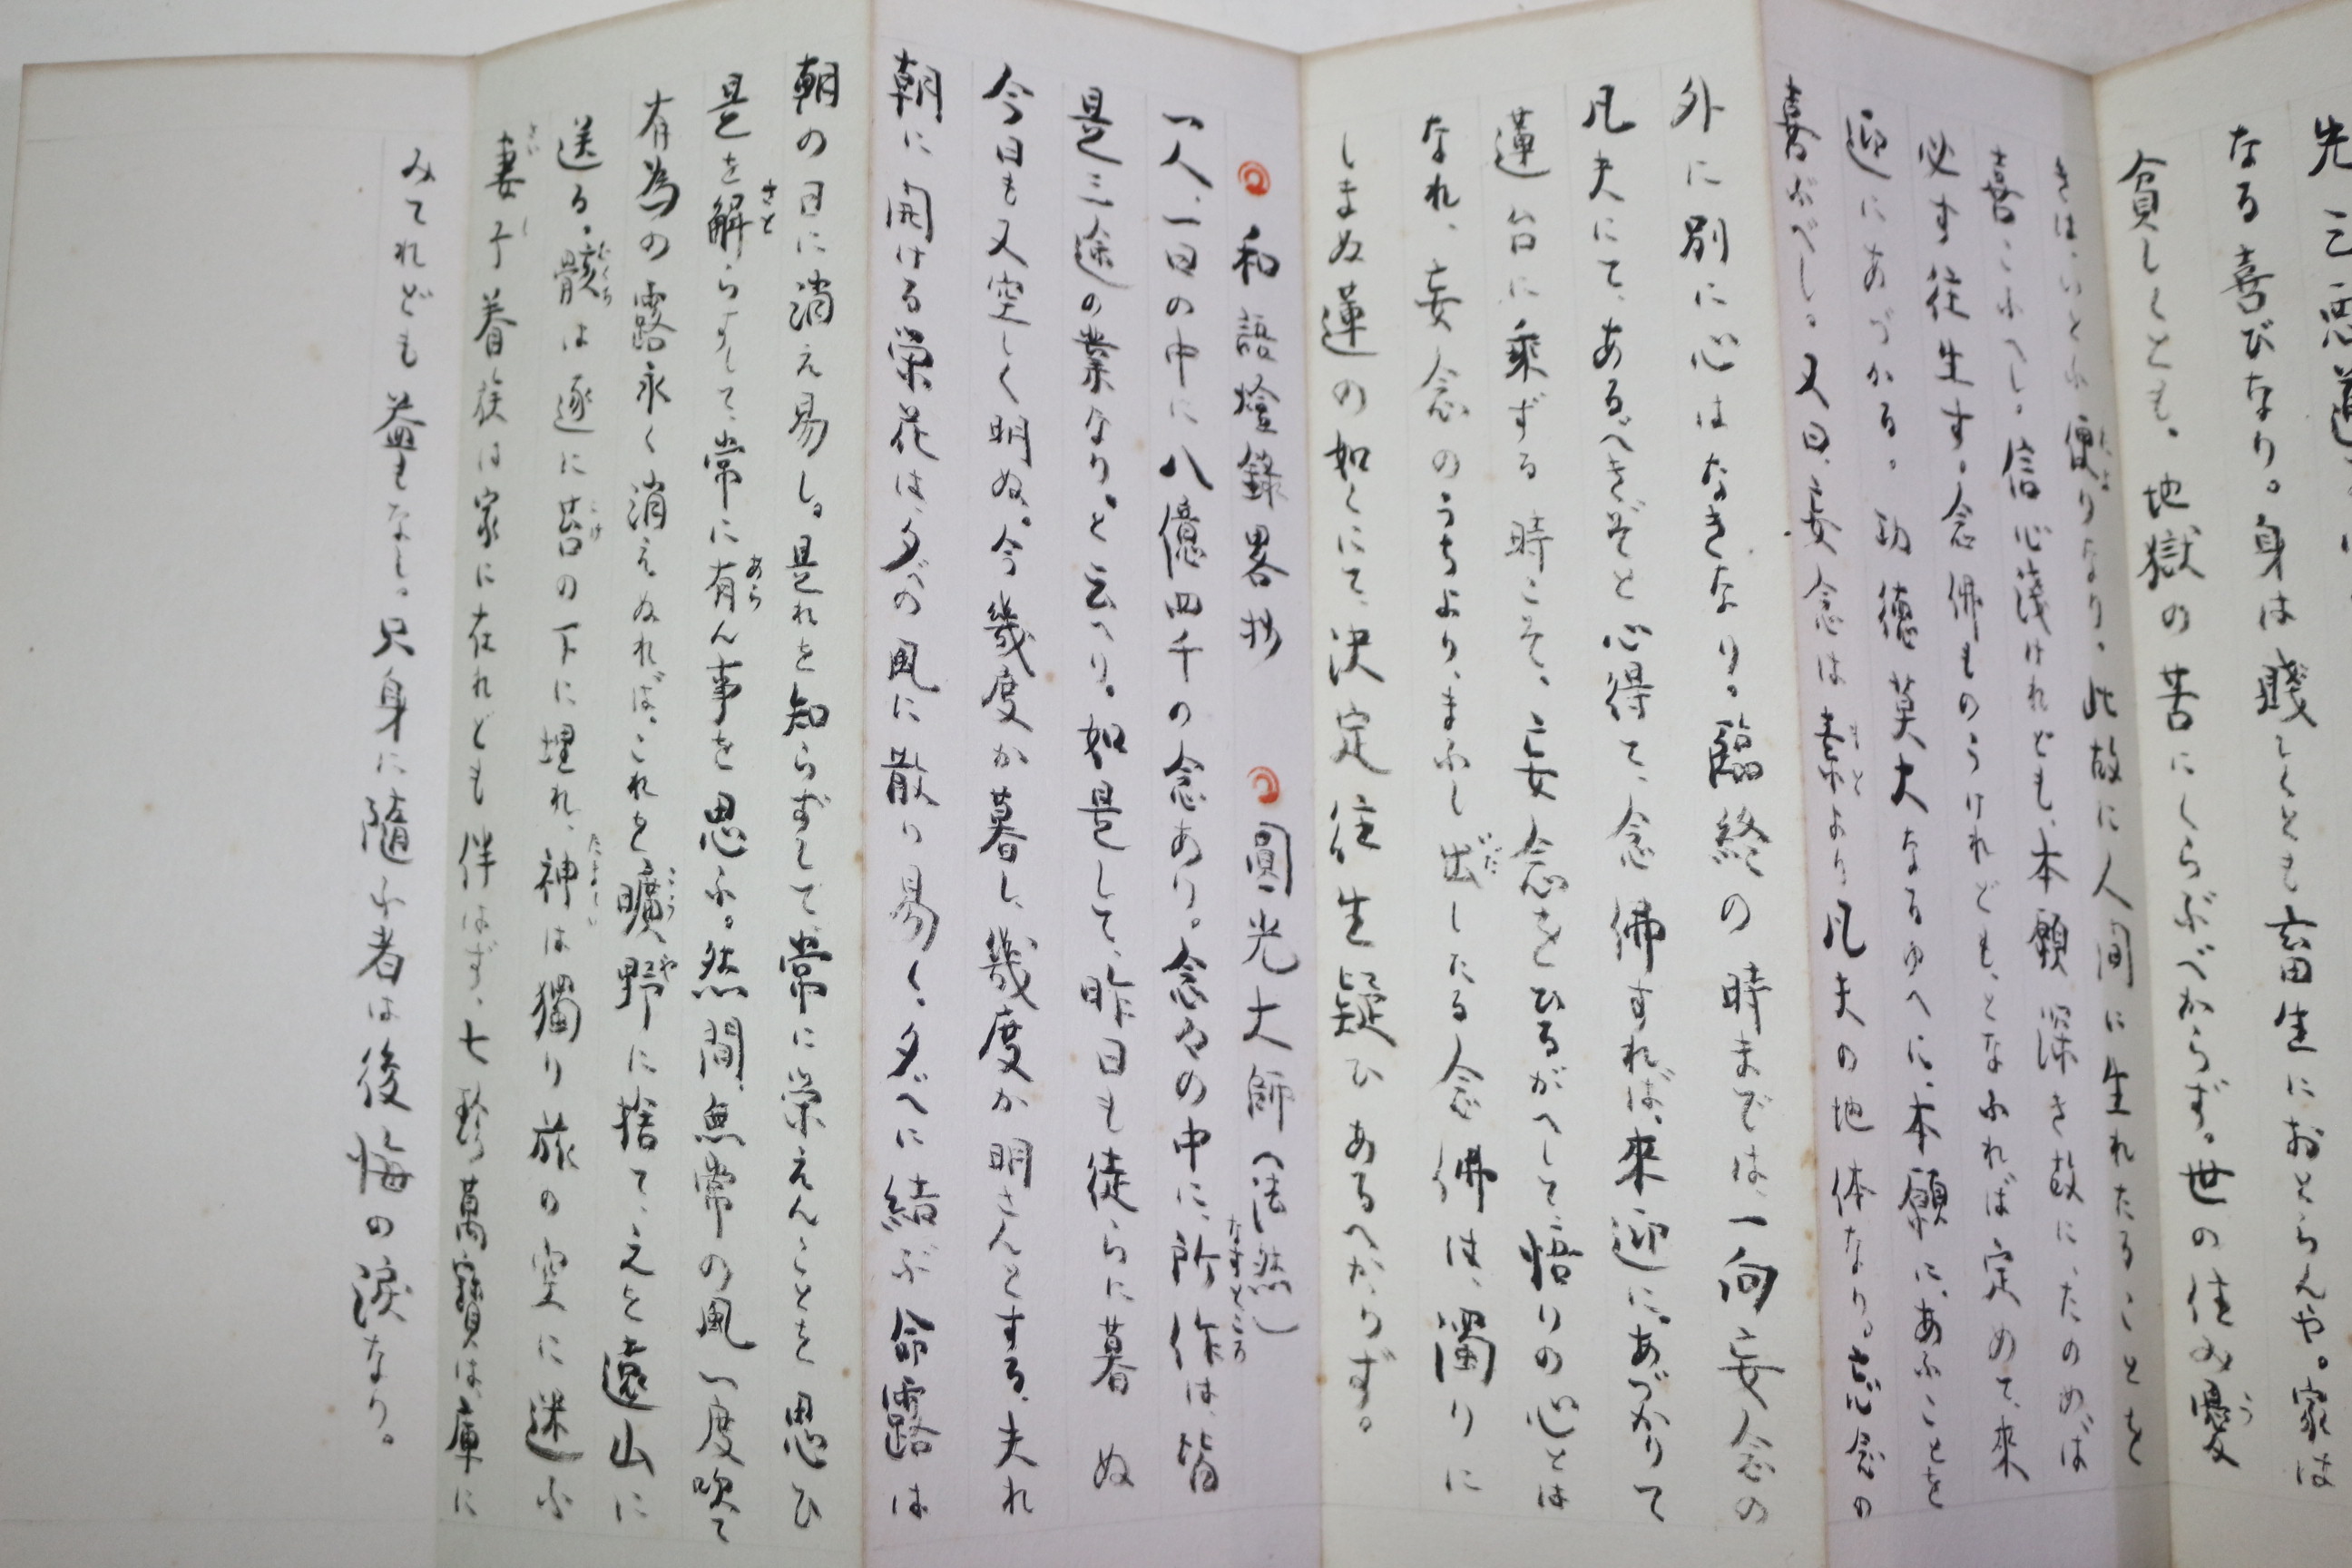 先三悪道
なる喜びなり。身は賤しくとも畜生におとらんや。家は
貧しくとも。地獄の苦にくらぶべからず。世の住ぬ憂
きは、いとふ便りなり。此故に人間に生れたることを
喜こふへし。信心浅けれども、本願深き故に、たのめば
必す往生す。念佛ものうけれども、となふれば定めて、来
迎にあづかる。功徳莫大なるゆへに、本願に、あふことを
喜ぶべし。又曰、妄念は素より凡夫の地体なり。妄念の
外に別に心はなきなり。臨終の時までは、一向妄念の
凡夫にて、あるべきぞと心得て、念佛すれば、來迎に、あづかりて
蓮台に乗ずる時こそ、妄念をひるがへして、悟りの心とは
なれ、妄念のうちより、まふし出したる念佛は、濁りに
しまぬ蓮の如くにて、決定往生疑ひあるへからず。
和語燈錄畧抄 圓光大師(法然)
一人、一日の中に八億四千の念あり。念々の中に、所作は、皆
是三途の業なり。と云へり。如是して、昨日も徒らに暮ぬ
今日も又空しく明ぬ。今幾度か暮し、幾度か明さんとする、夫れ
朝に開ける栄花は、夕べの風に散り易く、夕べに結ぶ命露は
朝の日に消え易し。是れを知らずして常に栄えんことを思ひ
是を解らずして、常に有ん事を思ふ。然間、無常の風一度吹て
有為の露永く消えぬれば、これを曠野に捨て、えを遠山に
送る。骸は遂に苔の下に埋れ、神は獨り旅の空に迷ふ
妻子眷族は家に在れども伴はず、七珍萬寶は、庫に
みてれども益もなし。只身に隨ふ者は後悔の涙なり。